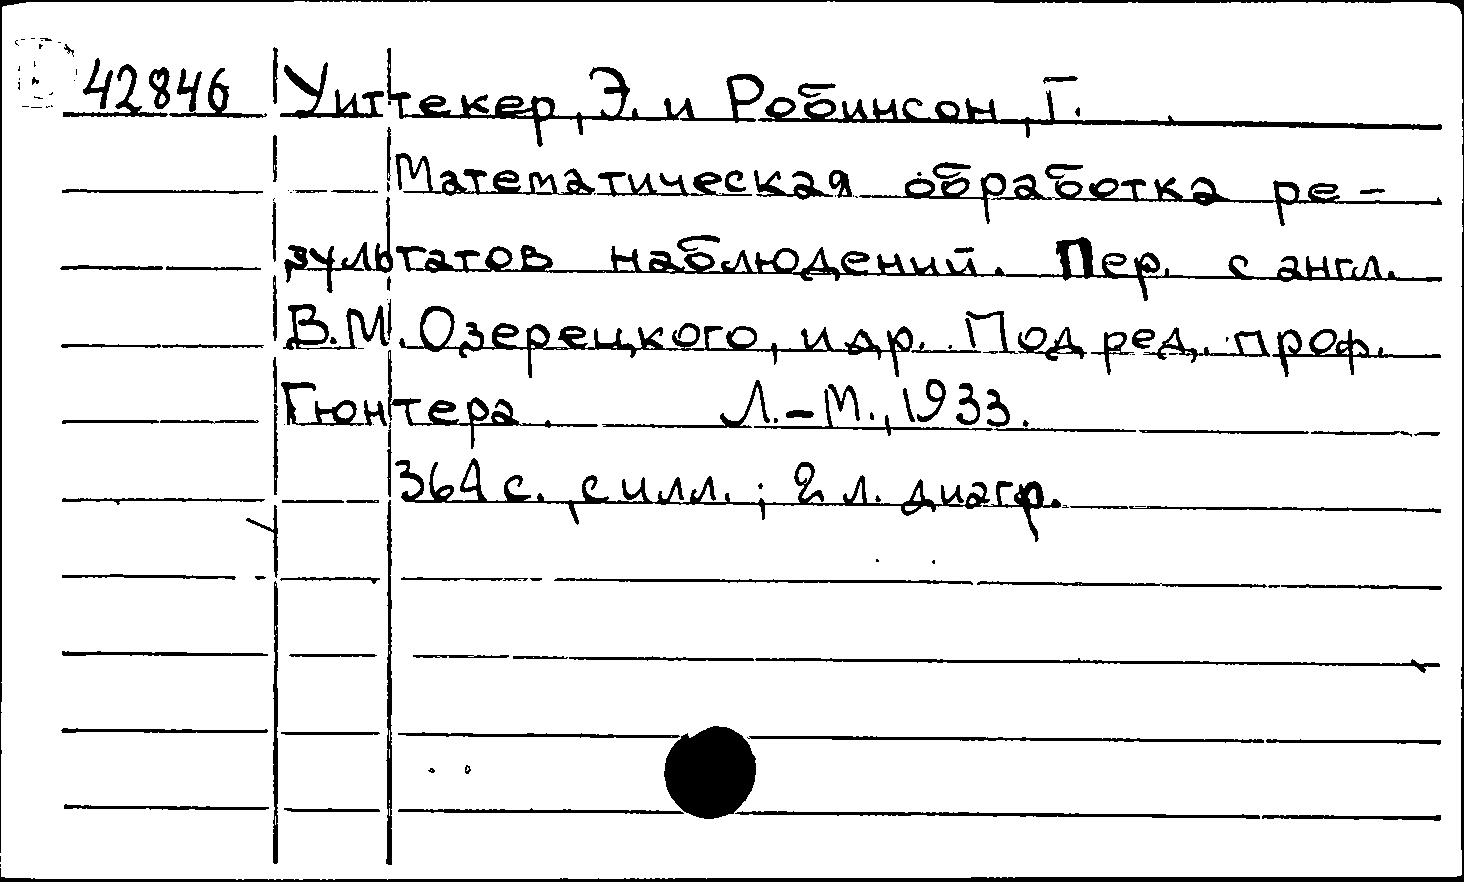 42846 Уиттекер, Э. и Робинсон, Г.
Математическая обработка ре-
зультатов наблюдений. Пер. с англ.
В.М. Озерецкого, и др. Под ред. проф.
Гюнтера. Л.-М., 1933.
364 с., с илл.; 2 л. диагр.